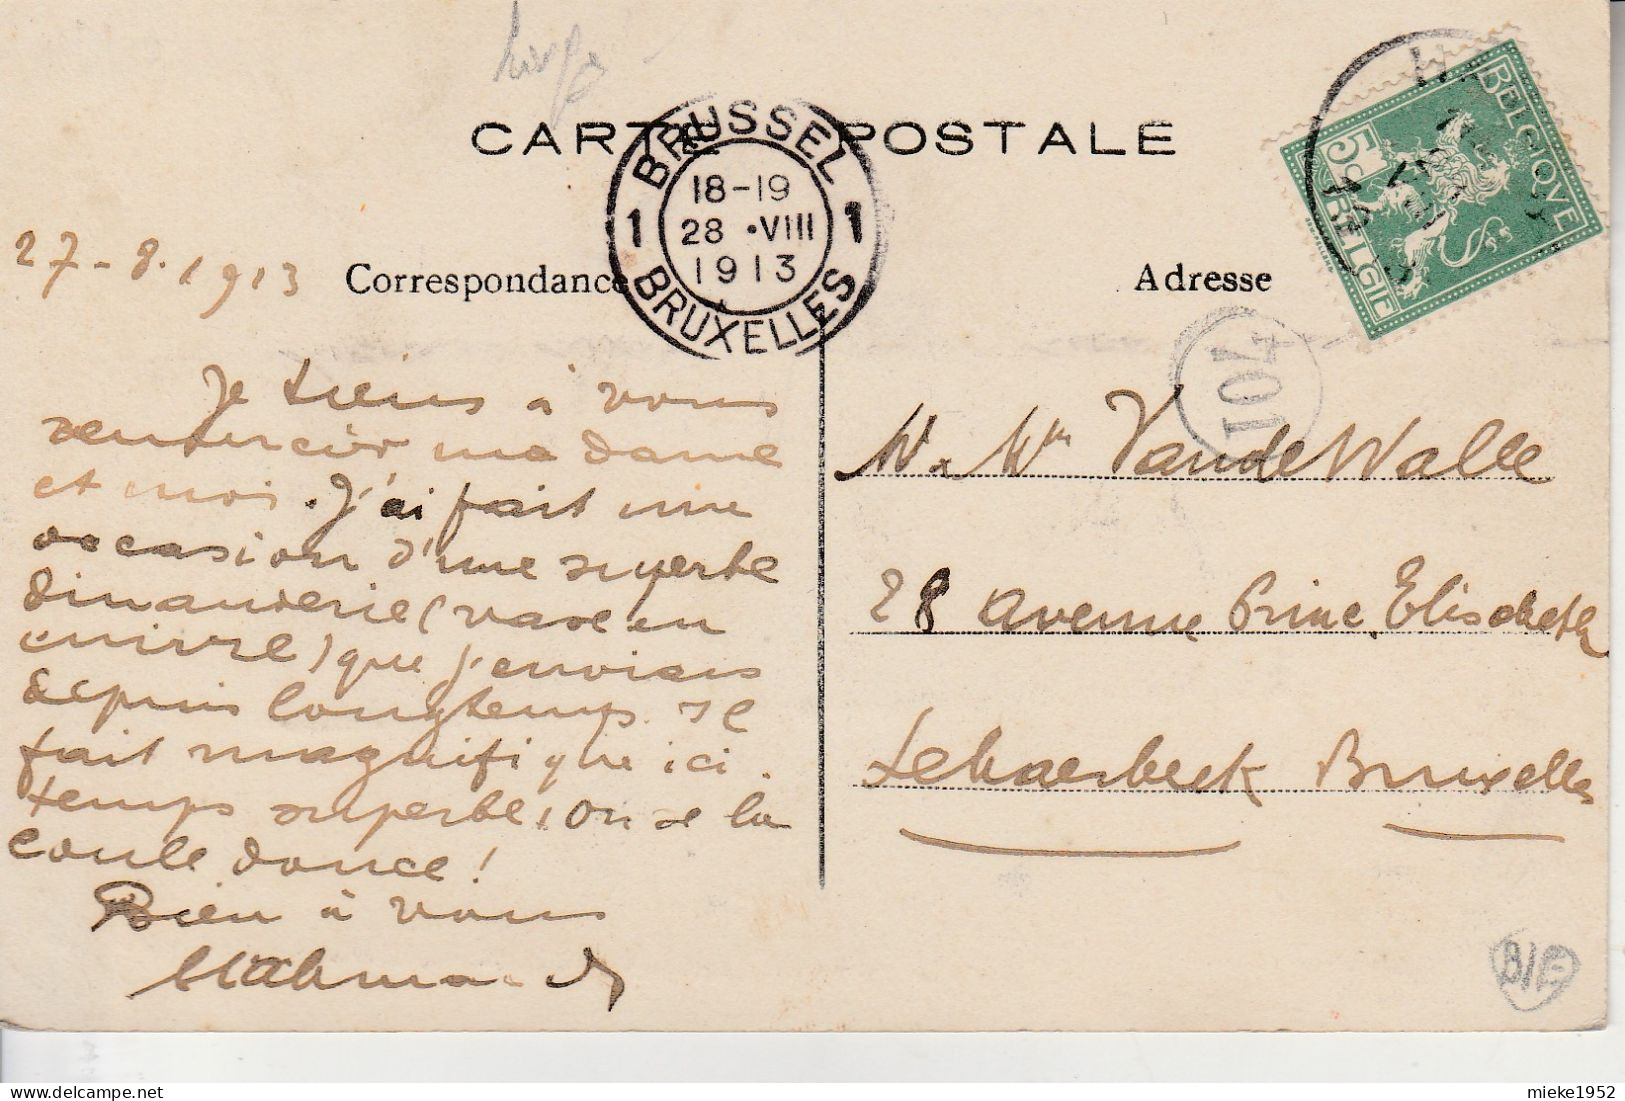 CARTE POSTALE
BRUSSEL
1 18-19 1
28 •VIII
1913
BRUXELLES
BELGIQVE
5c
BELGIE
27-8.1913
Correspondance
Adresse
104
Je tiens à vous
remercier madame
et moi. J'ai fait une
occasion d'une superbe
dinanderie (vase en
cuivre) que j'enviais
depuis longtemps. Il
fait magnifique ici.
temps superbe, on se la
coule douce!
Bien à vous
Mr & Mme VandeWalle
28 Avenue Princ. Elisabeth
Schaerbeek Bruxelles
B/E
mieke1952